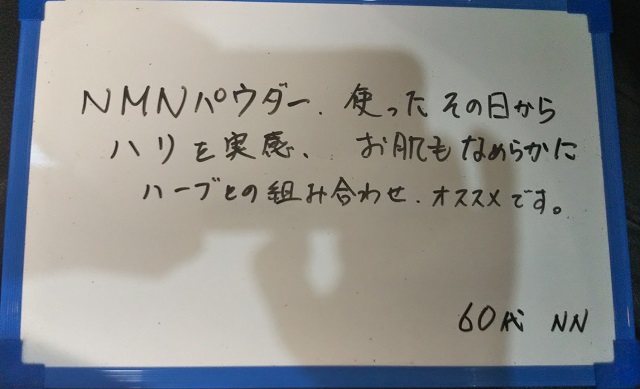 NMNパウダー. 使ったその日から
ハリを実感、 お肌もなめらかに
ハーブとの組み合わせ. オススメです。
60代 NN